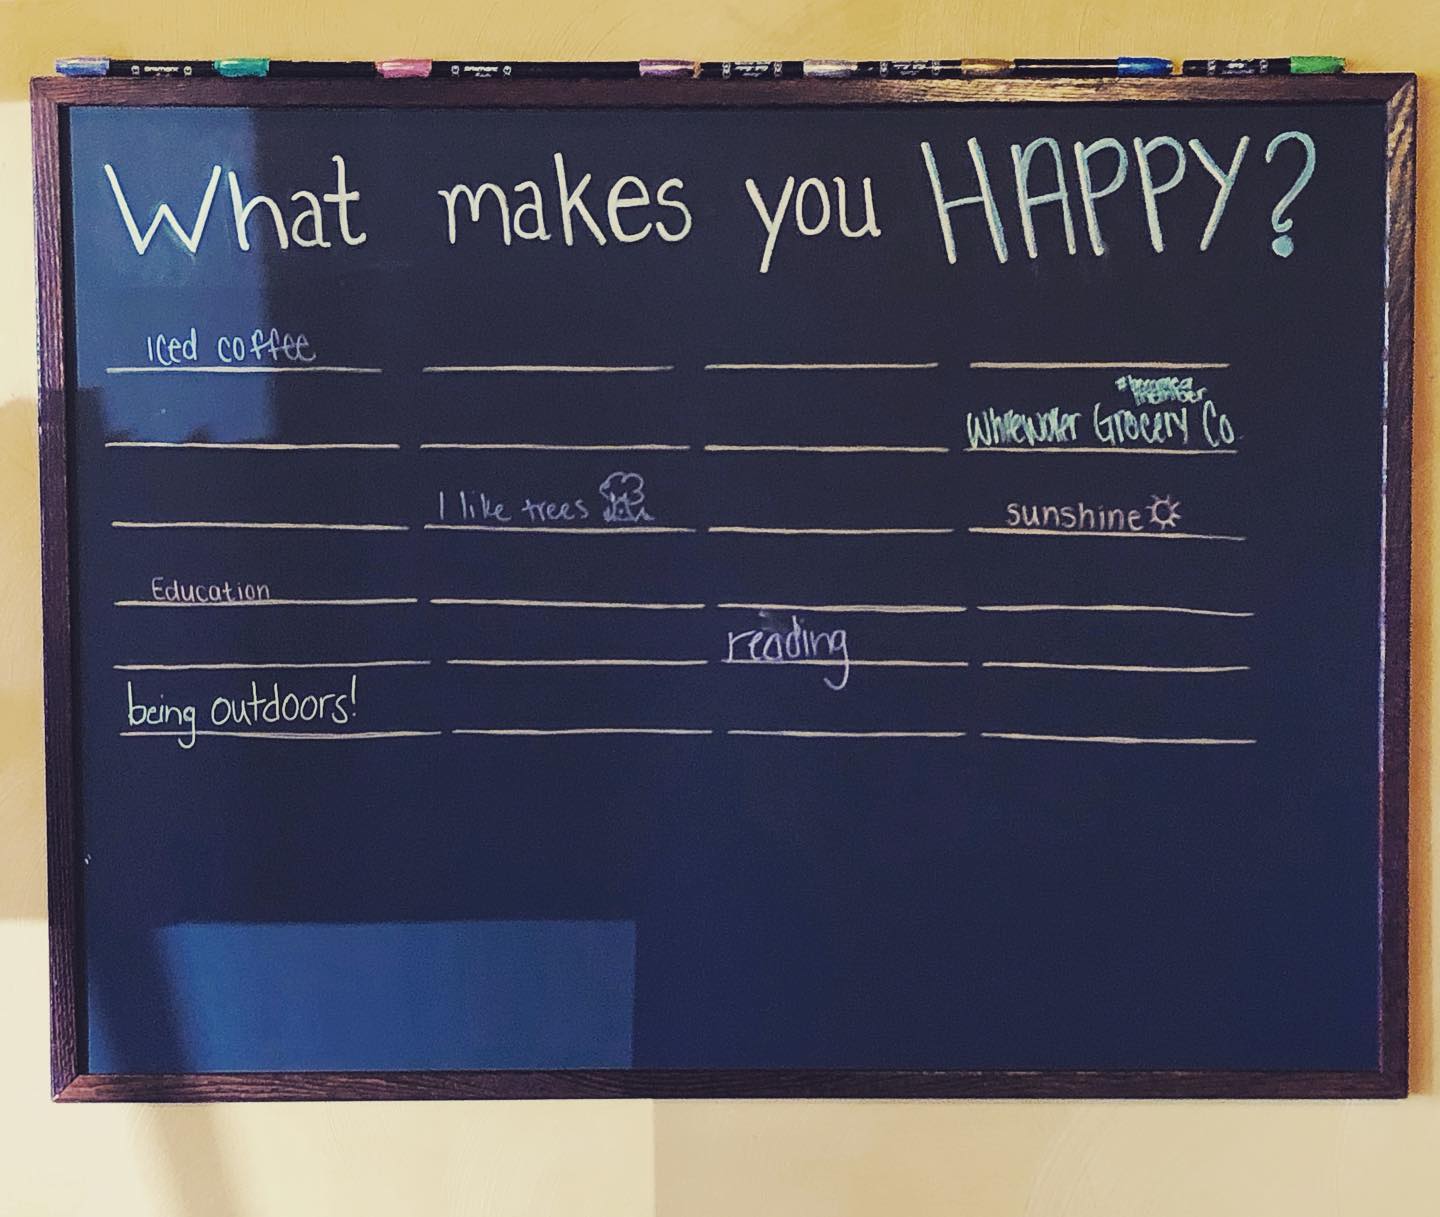 What makes you HAPPY?
Iced coffee
#become a member
Whitewater Grocery Co.
I like trees
sunshine
Education
reading
being outdoors!